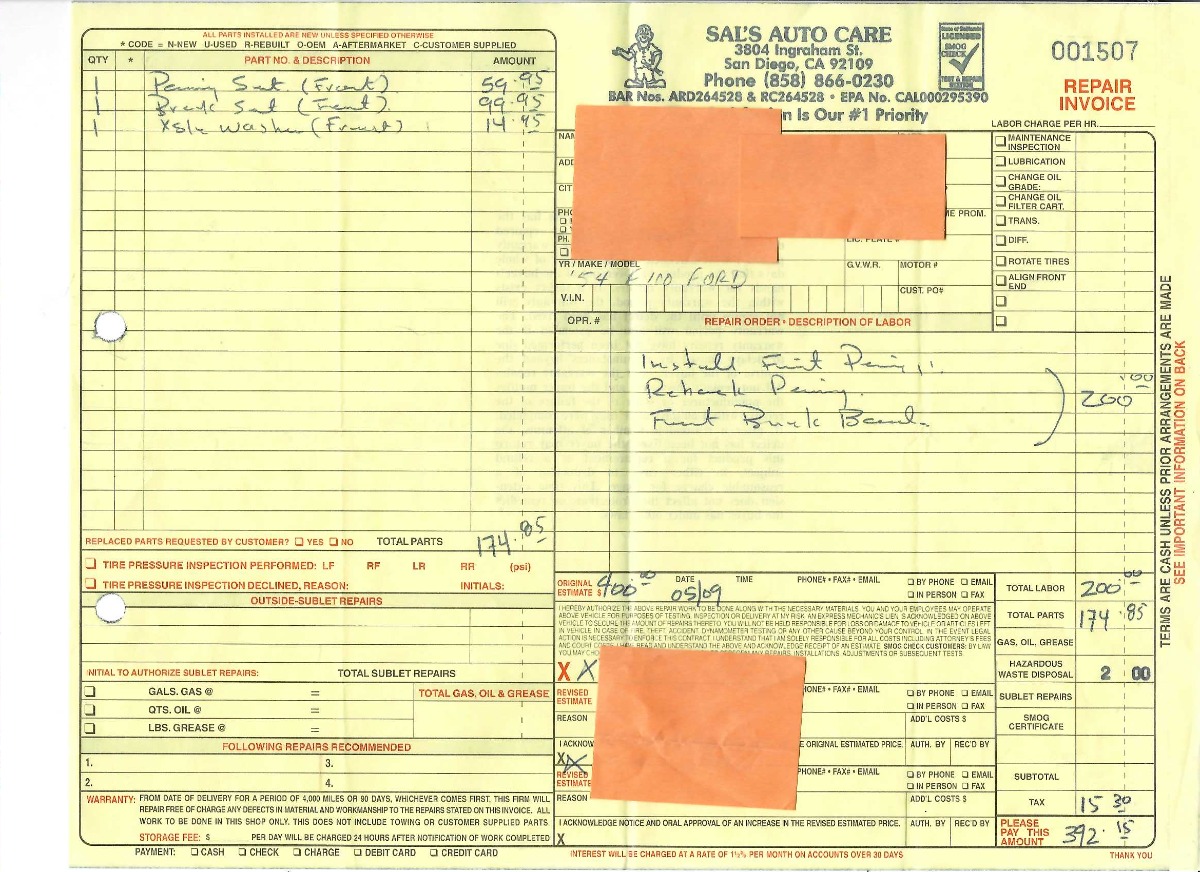 ALL PARTS INSTALLED ARE NEW UNLESS SPECIFIED OTHERWISE
* CODE = N-NEW U-USED R-REBUILT O-OEM A-AFTERMARKET C-CUSTOMER SUPPLIED
QTY * PART NO. & DESCRIPTION AMOUNT
1 Set (Front) 59.95
1 Set (Front) 99.95
1 Washer (Front) 14.95
REPLACED PARTS REQUESTED BY CUSTOMER? ☐ YES ☐ NO TOTAL PARTS 174.85
☐ TIRE PRESSURE INSPECTION PERFORMED: LF RF LR RR (psi)
☐ TIRE PRESSURE INSPECTION DECLINED, REASON: INITIALS:
OUTSIDE-SUBLET REPAIRS
INITIAL TO AUTHORIZE SUBLET REPAIRS: TOTAL SUBLET REPAIRS
☐ GALS. GAS @ = TOTAL GAS, OIL & GREASE
☐ QTS. OIL @ =
☐ LBS. GREASE @ =
FOLLOWING REPAIRS RECOMMENDED
1. 3.
2. 4.
WARRANTY: FROM DATE OF DELIVERY FOR A PERIOD OF 4,000 MILES OR 90 DAYS, WHICHEVER COMES FIRST, THIS FIRM WILL
REPAIR FREE OF CHARGE ANY DEFECTS IN MATERIAL AND WORKMANSHIP TO THE REPAIRS STATED ON THIS INVOICE. ALL
WORK TO BE DONE IN THIS SHOP ONLY. THIS DOES NOT INCLUDE TOWING OR CUSTOMER SUPPLIED PARTS.
STORAGE FEE: $ PER DAY WILL BE CHARGED 24 HOURS AFTER NOTIFICATION OF WORK COMPLETED
PAYMENT: ☐ CASH ☐ CHECK ☐ CHARGE ☐ DEBIT CARD ☐ CREDIT CARD
SAL'S AUTO CARE
3804 Ingraham St.
San Diego, CA 92109
Phone (858) 866-0230
BAR Nos. ARD264528 & RC264528 • EPA No. CAL000295390
n Is Our #1 Priority
State of California
LICENSED
SMOG
CHECK
TEST & REPAIR
STATION
001507
REPAIR
INVOICE
LABOR CHARGE PER HR.
NAM
ADD
CIT
PHO
PH.
E PROM.
LIC. PLATE #
YR / MAKE / MODEL G.V.W.R. MOTOR #
'54 F100 FORD
V.I.N. CUST. PO#
☐ MAINTENANCE
INSPECTION
☐ LUBRICATION
☐ CHANGE OIL
GRADE:
☐ CHANGE OIL
FILTER CART.
☐ TRANS.
☐ DIFF.
☐ ROTATE TIRES
☐ ALIGN FRONT
END
OPR. # REPAIR ORDER • DESCRIPTION OF LABOR
Install Front
200.00
Front
ORIGINAL
ESTIMATE $ 400.00 DATE 05/09 TIME PHONE# • FAX# • EMAIL ☐ BY PHONE ☐ EMAIL
☐ IN PERSON ☐ FAX
I HEREBY AUTHORIZE THE ABOVE REPAIR WORK TO BE DONE ALONG WITH THE NECESSARY MATERIALS. YOU AND YOUR EMPLOYEES MAY OPERATE
ABOVE VEHICLE FOR PURPOSES OF TESTING, INSPECTION OR DELIVERY AT MY RISK. AN EXPRESS MECHANIC'S LIEN IS ACKNOWLEDGED ON ABOVE
VEHICLE TO SECURE THE AMOUNT OF REPAIRS THERETO. YOU WILL NOT BE HELD RESPONSIBLE FOR LOSS OR DAMAGE TO VEHICLE OR ARTICLES LEFT
IN VEHICLE IN CASE OF FIRE, THEFT, ACCIDENT
X X
REVISED
ESTIMATE HONE# • FAX# • EMAIL ☐ BY PHONE ☐ EMAIL
☐ IN PERSON ☐ FAX
REASON ADD'L COSTS $
I ACKNOW E ORIGINAL ESTIMATED PRICE. AUTH. BY REC'D BY
X X
REVISED
ESTIMATE PHONE# • FAX# • EMAIL ☐ BY PHONE ☐ EMAIL
☐ IN PERSON ☐ FAX
REASON ADD'L COSTS $
I ACKNOWLEDGE NOTICE AND ORAL APPROVAL OF AN INCREASE IN THE REVISED ESTIMATED PRICE. AUTH. BY REC'D BY
X
INTEREST WILL BE CHARGED AT A RATE OF 1½% PER MONTH ON ACCOUNTS OVER 30 DAYS
TOTAL LABOR 200.00
TOTAL PARTS 174.85
GAS, OIL, GREASE
HAZARDOUS
WASTE DISPOSAL 2 00
SUBLET REPAIRS
SMOG
CERTIFICATE
SUBTOTAL
TAX 15 30
PLEASE
PAY THIS
AMOUNT 392.15
THANK YOU
TERMS ARE CASH UNLESS PRIOR ARRANGEMENTS ARE MADE
SEE IMPORTANT INFORMATION ON BACK